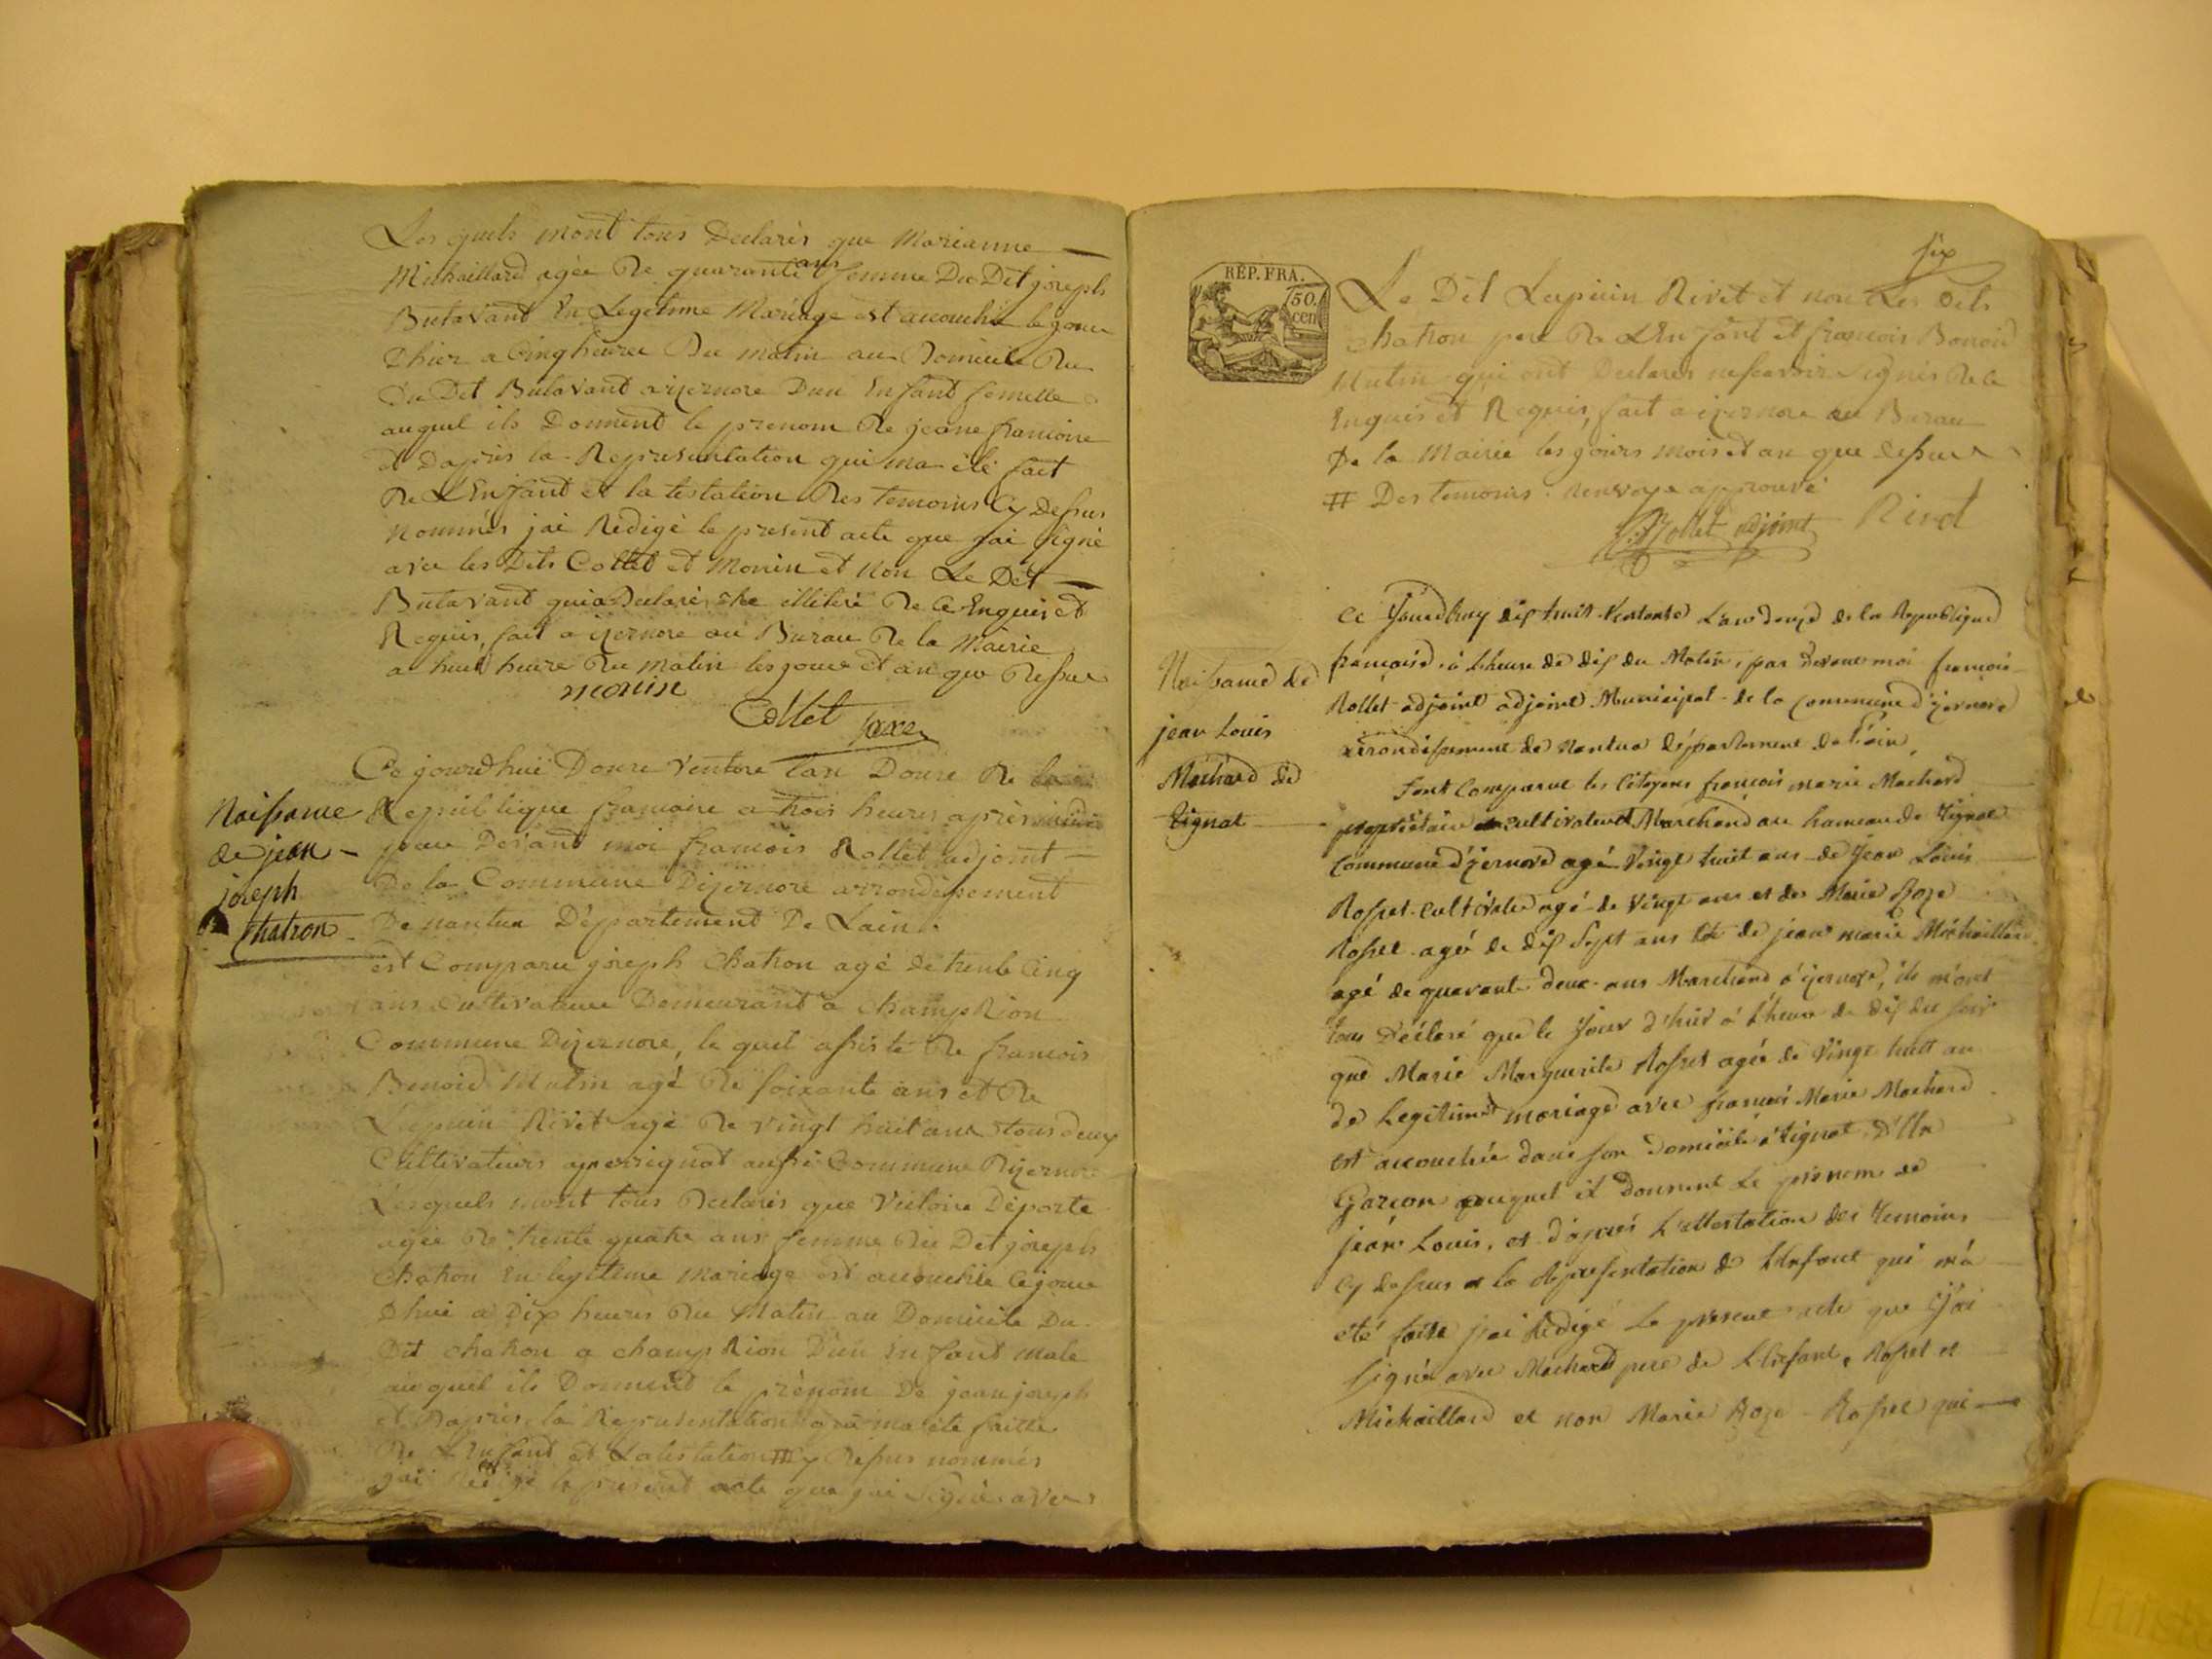 Les quels mont tous Declarés que Marianne
Michaillard agée de quarante ans femme Du Dit joseph
Butavand En Legitime Mariage est accouchée le jour
Dhier a Cinq heures Du matin au Domicile Du
Du Dit Butavand a izernore Dun Enfant femelle
auquel ils Donnent le prenom De jeane francoise
et Dapres la Representation qui ma été fait
De LEnfant et la testation Des temoins Cy Dessus
Nommés jai Redigé le present acte que jai signé
avec les Dits Collet et Monin et Non Le Dit
Butavand qui a Declaré etre illitéré De Ce Enquis et
Requis, fait a izernore au Bureau De la Mairie
a huit heure Du matin les jour et an que Dessus
monin
Collet
Ce jourdhui Douze Ventose lan Douze De la
Naissance
de jean
joseph
Chatron
Republique francoise a trois heures après midi
par Devant moi francois Rollet adjoint
De la Commune Dizernore arrondissement
De nantua Departement De Lain
est Comparu joseph Chatron agé de trente Cinq
ans Cultivateur Demeurant a Champ Rion
Commune Dizernore, le quel assisté De francois
Benoid Mutin agé De soixante ans et De
Lupuin Rivet agé De vingt huit ans tous deux
Cultivateurs a perrignat aussi Commune Dizernore
Lesquels mont tous Declarés que Victoire Déporte
agée De trente quatre ans femme Du Dit joseph
Chatron En legitime Mariage est accouchée Cejour
Dhui a Dix heures Du Matin au Domicile Du
Dit Chatron a Champ Rion Dun Enfant male
au quel ils Donnent le prénom De jean joseph
et Dapres la Representation qui ma été faitte
De LEnfant et Latestation # Cy Dessus nommés
jai Redigé le present acte que jai Signé avec
six
RÉP. FRA.
50.
cen
Le Dit Lupuin Rivet et non Les Dits
Chatron pere De LEnfant et francois Bonoid
Mutin qui ont Declarés nescavoir Signés De Ce
Enquis et Requis, fait a izernore au Bureau
De la Mairie les jours mois et an que dessus
# Des temoins. Renvoye approuvé
Rollet adjoint Rivet
Ce Jourdhuy dix huit Ventose Lan douze de la Republique
Naissance de
jean Louis
Machard de
tignat
francaise à Lheure de dix du Matin, par devant moi francois
Rollet adjoint adjoint Municipal de la Commune d'izernore
arrondissement de Nantua département de L'ain
sont Comparut les Citoyens francois marie Machard
propriétaire et cultivateur Marchand au hameau de Tignat
Commune d'izernore agé Vingt huit ans de Jean Louis
Rosset Cultivateur agé de Vingt ans et de Marie Roze
Rosset agée de dix Sept ans et de jean marie Michaillard
agé de quarante deux ans Marchand à izernore, ils m'ont
tous Déclaré que le Jour d'hier à Lheure de dix du soir
que Marie Marguerite Rosset agée de Vingt huit an
de Legitime mariage avec francois Marie Machard
est accouchée dans son Domicile à Tignat, D'Un
Garcon auquel il donnent Le prenom de
jean Louis, et d'aprés L'attestation des temoins
Cy dessus et la Representation de LEnfant qui m'a
été faite j'ai Redigé Le present acte que J'ai
Signé avec Machard pere de LEnfant, Rosset et
Michaillard et non Marie Roze Rosset qui